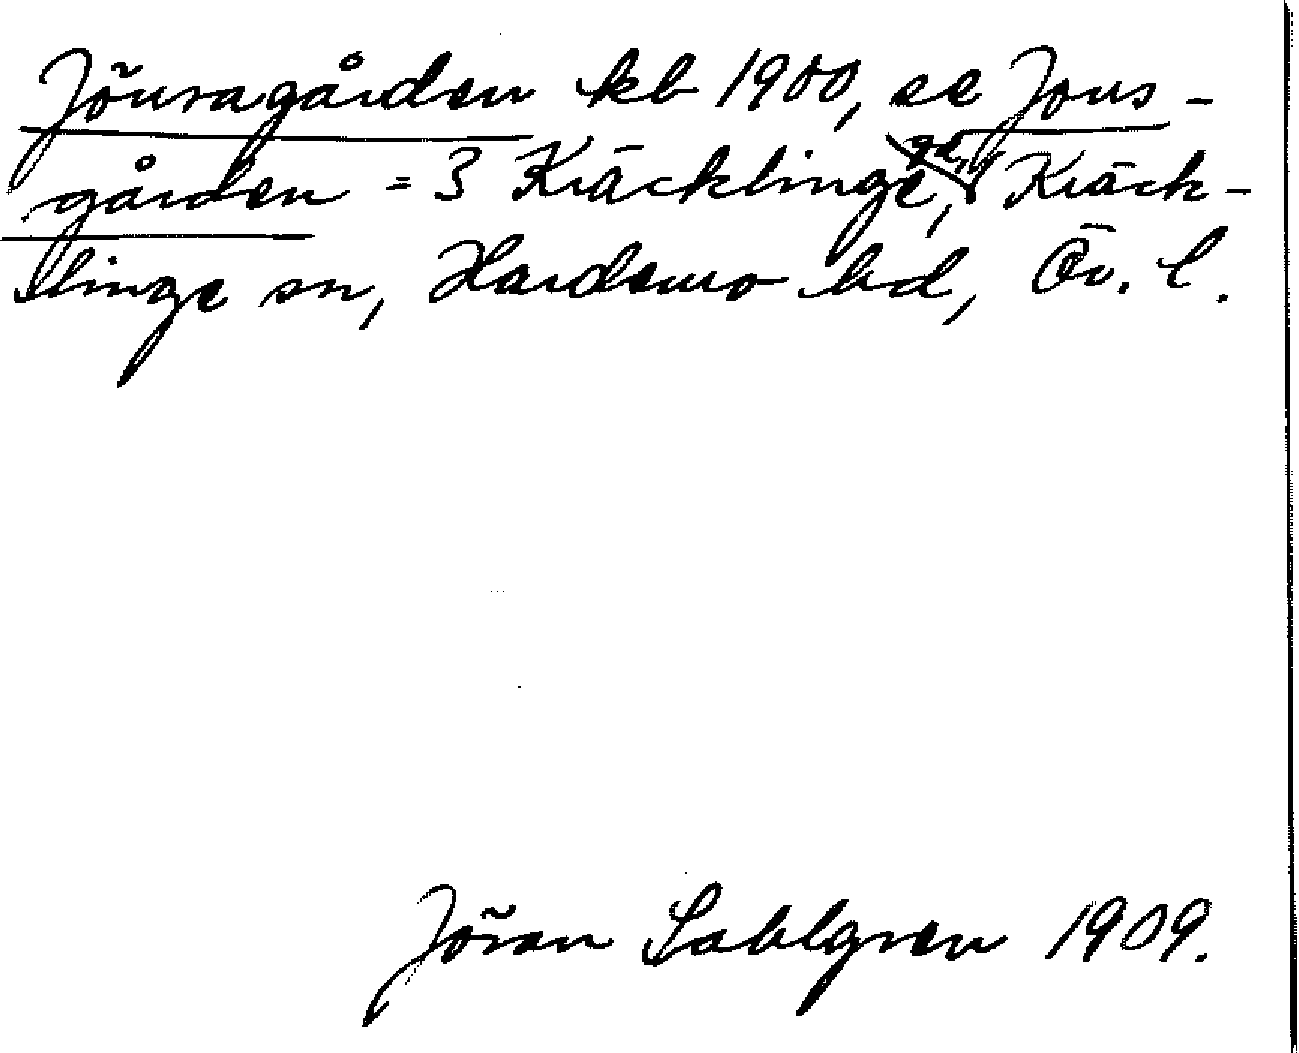 Jönsagården kb 1900, se Jons-
gården = 3 Kräcklinge, gd, Kräck-
linge sn, Hardemo hd, Ör. l.
Jöran Sahlgren 1909.